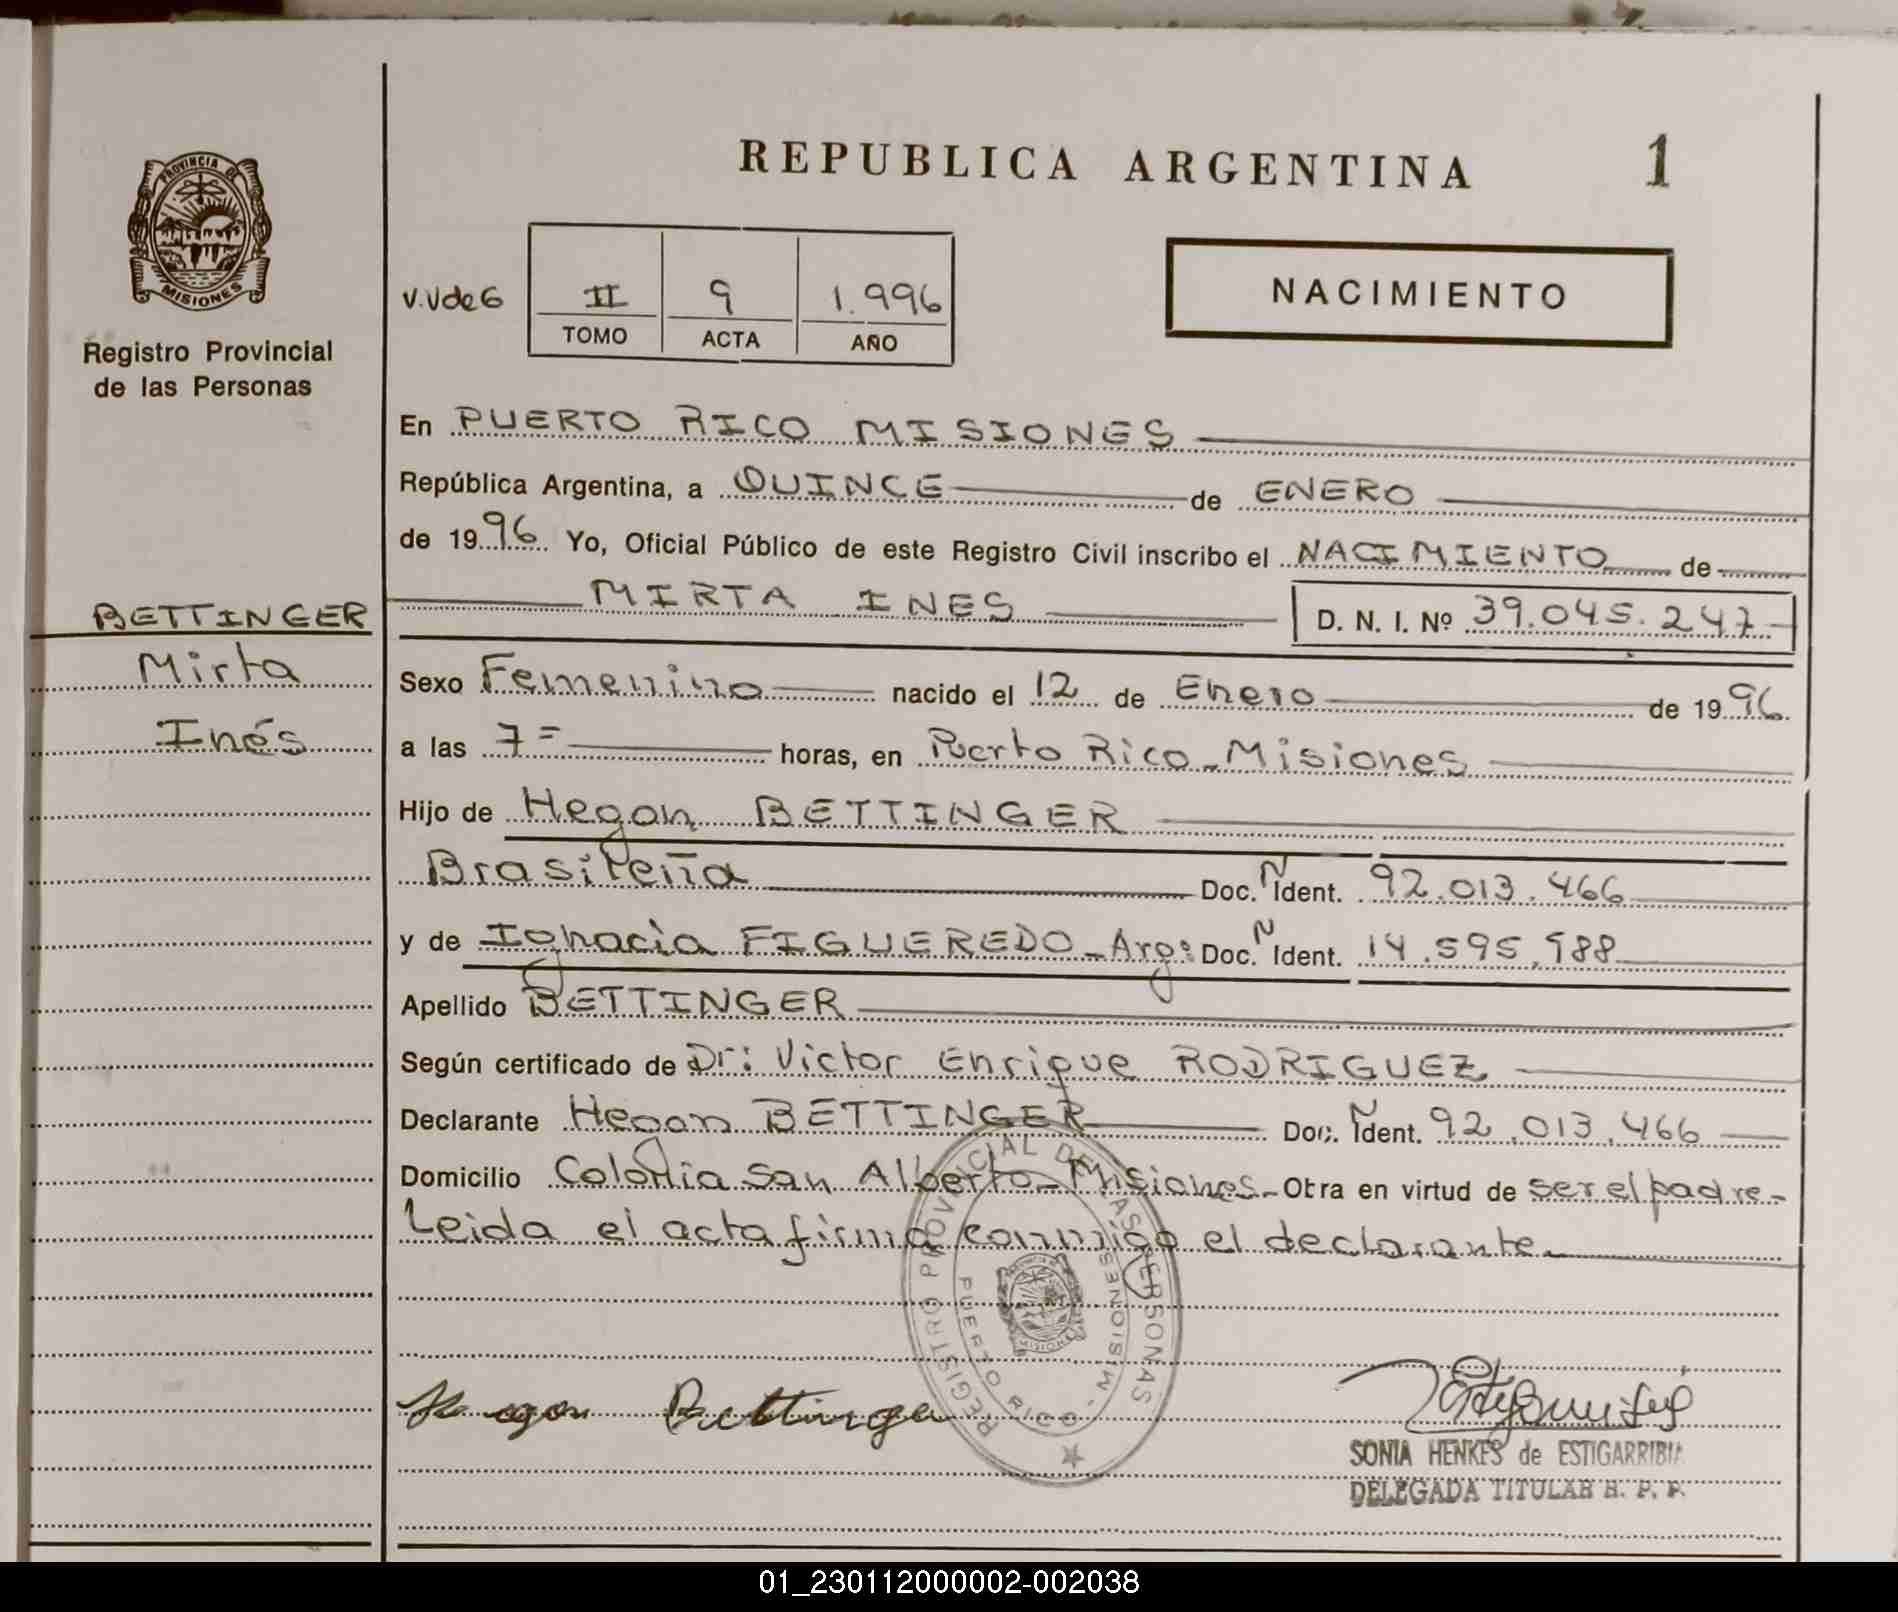 REPUBLICA ARGENTINA
1
PROVINCIA DE
MISIONES
Registro Provincial
de las Personas
V.Vde6
II 9 1.996
TOMO ACTA AÑO
NACIMIENTO
En PUERTO RICO MISIONES
República Argentina, a QUINCE de ENERO
de 1996 Yo, Oficial Público de este Registro Civil inscribo el NACIMIENTO de
MIRTA INES D. N. I. Nº 39.045.247
BETTINGER
Mirta
Inés
Sexo Femenino nacido el 12 de Enero de 1996.
a las 7= horas, en Puerto Rico-Misiones
Hijo de Hegon BETTINGER
Brasileña Doc. Ident. 92.013.466
y de Ignacia FIGUEREDO-Arg: Doc. Ident. 14.595.988
Apellido BETTINGER
Según certificado de Dr: Victor Enrique RODRIGUEZ
Declarante Hegon BETTINGER Doc. Ident. 92.013.466
Domicilio Colonia San Alberto-Misiones-Otra en virtud de ser el padre-
Leida el acta firma conmigo el declarante-
REGISTRO PROVINCIAL DE LAS PERSONAS
PUERTO RICO - MISIONES
Hegon Bettinger
SONIA HENKES de ESTIGARRIBIA
DELEGADA TITULAR R. P. P.
01_230112000002-002038